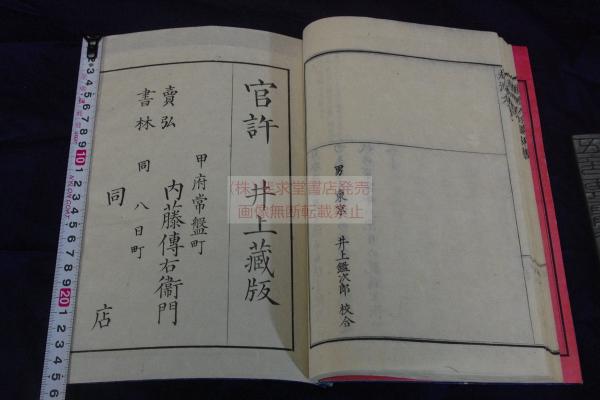 男 東萃 井上鑑次郎 校合
官許 井上藏版
甲府常盤町
賣弘 内藤傳右衞門
書林 同 八日町
同 店
(株)玉求堂書店発売
画像無断転載禁止